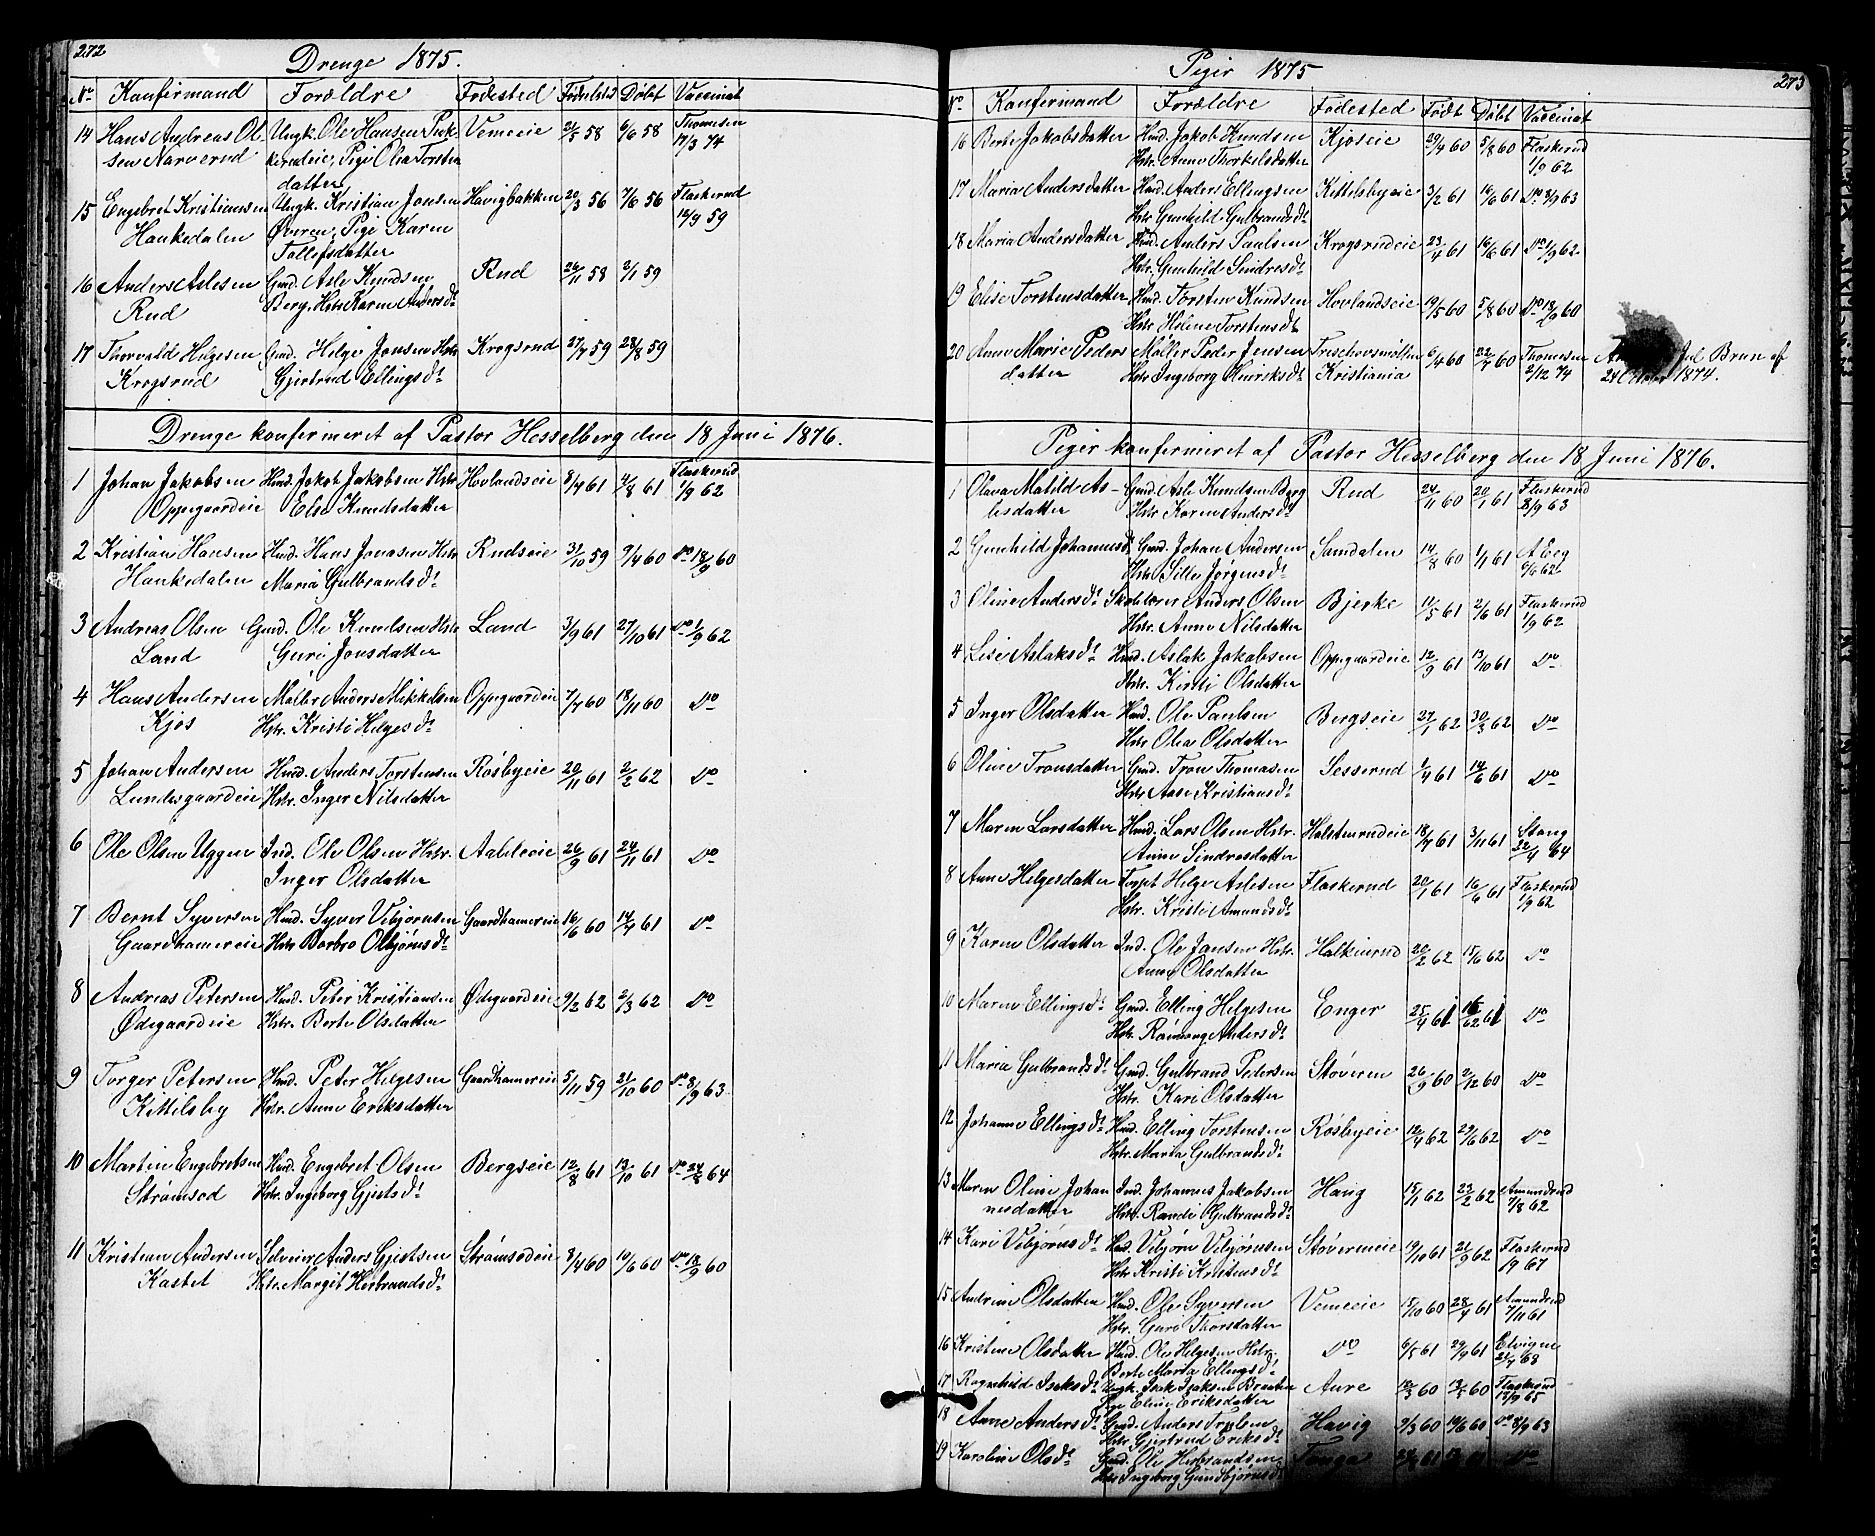 272
Drenge 1875.
No Konfirmand Forældre Fødested Fødselstid Døbt Vaccinat
14 Hans Andreas Ol- Ungk. Ole Hansen Vemeeie 2/5 58 6/6 58 Thomesen
sen Narverud Pige Olea Torsten 17/3 74
datter
15 Engebret Kristiansen Ungk. Kristian Jonsen Havigbakken 20/3 56 7/6 56 Flaskerud
Haukedalen Øveren, Pige Karen 12/9 59
Tollefsdatter
16 Anders Aslesen Gmd. Asle Knudsen Rud 26/11 58 2/1 59
Rud Berg, Hstr Karen Andersdr
17 Thorvald Helgesen Gmd. Helge Jonsen Hstr Krogsrud 27/7 59 28/8 59
Krogsrud Gjertrud Ellingsdr
Drenge konfirmeret af Pastor Hesselberg den 18 Juni 1876.
1 Johan Jakobsen Hmd. Jakob Jakobsen Hstr Hovlandseie 8/7 61 4/8 61 Flaskerud
Oppegaardeie Else Knudsdatter 1/9 62
2 Kristian Hansen Hmd. Hans Jonasen Hstr Rudseie 31/10 59 9/4 60 Do 18/9 60
Haukedalen Maria Gulbrandsdr
3 Andreas Olsen Gmd. Ole Knudsen Hstr Land 3/9 61 27/10 61 Do 1/9 62
Land Guri Jonsdatter
4 Hans Andersen Møller Anders Mikkelsen Oppegaardeie 7/7 60 18/11 60 Do
Kjøs Hstr. Kristi Helgesdr
5 Johan Andersen Hmd. Anders Torstensen Røsbyeie 20/11 61 2/2 62 Do
Lundesgaardeie Hstr. Inger Nilsdatter
6 Ole Olsen Uggen Ind. Ole Olsen Hstr. Aableeie 26/9 61 24/11 61 Do
Inger Olsdatter
7 Bernt Syversen Hmd. Syver Vebjørnsen Gaardhamereie 16/6 60 14/7 61 Do
Gaardhamereie Hstr Barbro Olbjørnsdr
8 Andreas Petersen Hmd. Peter Kristiansen Ødegaardeie 9/2 62 2/3 62 Do
Ødegaardeie Hstr. Berte Olsdatter
9 Torger Petersen Hmd. Peter Helgesen Gaardhamereie 5/11 59 21/10 60 Do 8/9 63
Kittelsby Hstr. Anne Eriksdatter
10 Martin Engebretsen Hmd. Engebret Olsen Bergseie 12/8 61 13/10 61 Do 24/8 64
Strømsod Hstr. Ingeborg Gjestsdr
11 Kristian Andersen Selveier Anders Gjestsen Strømsodeie 8/4 60 10/6 60 Do 18/9 60
Kastet Hstr. Margit Herbrandsdr
273
Piger 1875
No Konfirmand Forældre Fødested Født Døbt Vaccinat
16 Berte Jakobsdatter Hmd. Jakob Knudsen Kjøseie 29/4 60 5/8 60 Flaskerud
Hstr. Anne Thorkelsdatter 1/9 62
17 Maria Andersdatter Hmd. Anders Ellingsen Kittelsbyeie 3/2 61 16/6 61 Do 8/9 63
Hstr Gunhild Gulbrandsdr
18 Maria Andersdatter Hmd. Anders Paulsen Krogsrudeie 23/4 61 16/6 61 Do 1/9 62
Hstr. Gunhild Sindresdr
19 Elise Torstensdatter Hmd. Torsten Knudsen Hovlandseie 19/5 60 5/8 60 Do 18/9 60
Hstr Helene Torstensdr
20 Anne Marie Peders Møller Peder Jensen Treschovsmøllen 6/4 60 22/7 60 Thomesen Brun af
datter Hstr Ingeborg Henriksdr Kristiania 2/12 74 24 October 1874.
Piger konfirmeret af Pastor Hesselberg den 18 Juni 1876.
1 Olava Matild As- Gmd. Asle Knudsen Berg Rud 24/11 60 20/1 61 Flaskerud
lesdatter Hstr Karen Andersdr 8/9 63
2 Gunhild Johannesdr Gmd. Johan Andersen Somdalen 14/8 60 1/1 61 A Eeg
Hstr Sille Jørgensdr 6/6 62
3 Oline Andersdr Skolelærer Anders Olsen Bjerke 11/5 61 2/6 61 Flaskerud
Hstr. Anne Nilsdatter 1/9 62
4 Lise Aslaksdr Hmd. Aslak Jakobsen Oppegaardeie 12/9 61 13/10 61 Do
Hstr. Kirsti Olsdatter
5 Inger Olsdatter Hmd. Ole Paulsen Bergseie 27/1 62 30/3 62 Do
Hstr Olea Olsdatter
6 Oline Tronsdatter Gmd. Tron Thomasen Sesserud 1/4 61 14/6 61 Do
Hstr Aase Kristiansdr
7 Maren Larsdatter Hmd. Lars Olsen Hstr. Halstenrudeie 18/7 61 3/11 61 Stang
Anne Sindresdatter 22/4 64
8 Anne Helgesdatter Torpt Helge Aslesen Flaskerud 20/1 61 16/6 61 Flaskerud
Hstr. Kristi Amundsdr 1/9 62
9 Karen Olsdatter Ind. Ole Jansen Hstr. Halkinrud 20/2 62 15/6 62 Do
Anne Olsdatter
10 Maren Ellingsdr Gmd. Elling Helgesen Enger 25/4 61 16/62 61 Do
Hstr. Rønnaug Andersdr
11 Maria Gulbrandsdr Gmd. Gulbrand Petersen Støveren 26/9 60 2/12 60 Do
Hstr. Kari Olsdatter
12 Johanne Ellingsdr Hmd. Elling Torstensen Røsbyeie 12/4 62 29/6 62 Do
Hstr. Maria Gulbrandsdr
13 Maren Oline Johan Ind. Johannes Jakobsen Haug 15/1 62 23/2 62 Amundrud
nesdatter Hstr. Randi Gulbrandsdr 7/8 62
14 Kari Vebjørnsdr Hmd. Vebjørn Vebjørnsen Støverneie 19/10 61 21/9 62 Flaskerud
Hstr Kristi Kristensdr 19 67
15 Andrine Olsdatter Hmd. Ole Syversen Vemeeie 15/10 60 28/4 61 Amundrud
Hstr. Guri Thorsdatter 7/11 61
16 Kristine Olsdatter Hmd. Ole Helgesen Hstr. Do 6/5 61 29/9 61 Elvigne
Berte Marta Ellingsdr 21/9 68
17 Ragnhild Isaksdr Ungk. Isak Isaksen Braaten Aure 12/3 60 13/5 60 Flaskerud
Pige Eline Eriksdatter 17/9 65
18 Anne Andersdr Gmd. Anders Trulsen Havig 9/3 60 10/6 60 Do 8/9 63
Hstr Gjertrud Eriksdr
19 Karoline Olsdr Gmd. Ole Herbrandsen 61 61 Do
Hstr Ingeborg Gundbjørnsdr